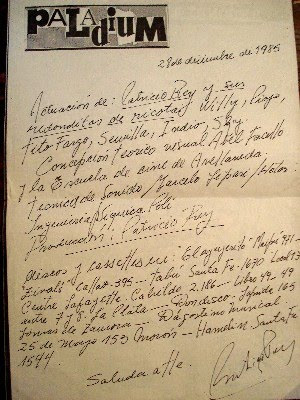 PALADIUM
28 de diciembre de 1986
Actuación de: Patricio Rey y sus
redonditos de ricota: Willy, Piojo,
Tito Fargo, Semilla, Indio, Sky.
Concepción teórico visual Abel Facello
y la Escuela de cine de Avellaneda.
tecnico de Sonido
Ingeniería Psíquica Poli
Producción: Patricio Rey
discos y cassettes en: El agujerito: Maipú 971-
"Zivals" Callao 395- Tabú Santa Fe 1670 Local 13
Centro Lafayette, Cabildo 2.186- Libre 49- 49
entre 7 y 8 La Plata - 165
Lomas de Zamora - D'agostino musical -
25 de Mayo 153 Morón - Santa Fe
1544
Saluda atte.